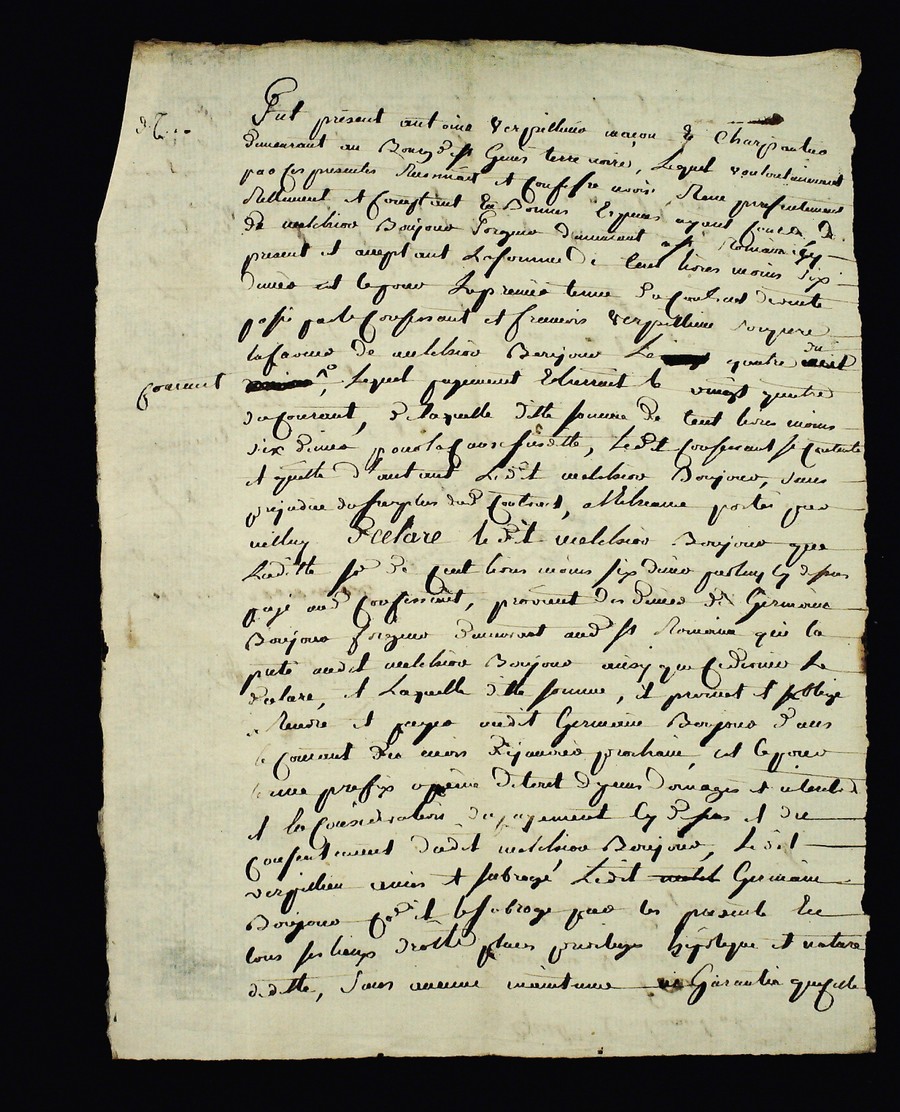 Fut présent antoine verpillieu maçon & Charpantier
demeurant au Bourg de st Genis terre noire, Lequel voulontairement
par ces presentes Reconnait et Confesse avoir Reçu presentement
Réellement et Comptant En Bonnes Especes ayant cours de
de melchior Bonjour forgeur demeurant a st Romain icy
present et acceptant La somme de Cent livres moins dix
deniers est le pour La premier terme du Contrat de vente
passé par le Confessant et francois verpillieu son pere
en faveur de melchior Bonjour Le quatre du
courant
, Lequel payement Echerrait le vingt quatre
du Courant, de laquelle ditte somme de Cent livres moins
dix deniers pour la Cause susditte, Ledit Confessant se Contente
et quitte d'autant Ledit melchior Bonjour, sans
prejudice du surplus dud Contrat, a l'Echeance portée par
icelluy Declare le dit melchior Bonjour que
Laditte so de Cent livres moins dix deniers par luy cy dessus
payé aud Confessant, provient des deniers de Germain
Bonjour forgeur demeurant aud st Romain qui la
preté audit melchior Bonjour ainsy que ce dernier Le
declare, et Laquelle ditte somme, il promet et s'oblige
Rendre et payer audit Germain Bonjour dans
le Courant du mois de janvier prochain, est le pour
terme prefix a peine de tous depens Domages et interets
et En Consideration du payement cy dessus et du
Consentement dudit melchior Bonjour, Ledit
verpillieu a mis et subrogé Ledit Germain
Bonjour et le subroge par les presentes En
tous ses lieux droits places privileges hipoteque et nature
de dette, sans aucune maintenue ni Garantie que celle